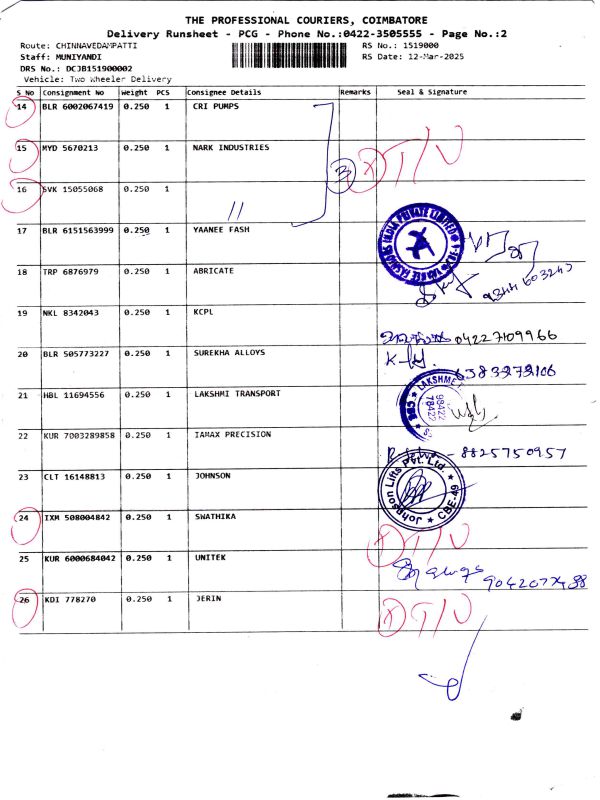 THE PROFESSIONAL COURIERS, COIMBATORE
Delivery Runsheet - PCG - Phone No.:0422-3505555 - Page No.:2
Route: CHINNAVEDAMPATTI RS No.: 1519000
Staff: MUNIYANDI RS Date: 12-Mar-2025
DRS No.: DCJB151900002
Vehicle: Two Wheeler Delivery
S No Consignment No Weight PCS Consignee Details Remarks Seal & Signature
14 BLR 6002067419 0.250 1 CRI PUMPS
15 MYD 5670213 0.250 1 NARK INDUSTRIES 3 X T/N
16 SVK 15055068 0.250 1 //
17 BLR 6151563999 0.250 1 YAANEE FASH
18 TRP 6876979 0.250 1 ABRICATE
19 NKL 8342043 0.250 1 KCPL 04227109966
20 BLR 505773227 0.250 1 SUREKHA ALLOYS 6383272106
21 HBL 11694556 0.250 1 LAKSHMI TRANSPORT LAKSHMI 98422 78422 CBE
22 KUR 7003289858 0.250 1 IAMAX PRECISION - 8825750957
23 CLT 16148813 0.250 1 JOHNSON Johnson Lifts Pvt. Ltd. CBE-49
24 IXM 508004842 0.250 1 SWATHIKA X T/N
25 KUR 6000684042 0.250 1 UNITEK 9042077488
26 KDI 778270 0.250 1 JERIN X T/N